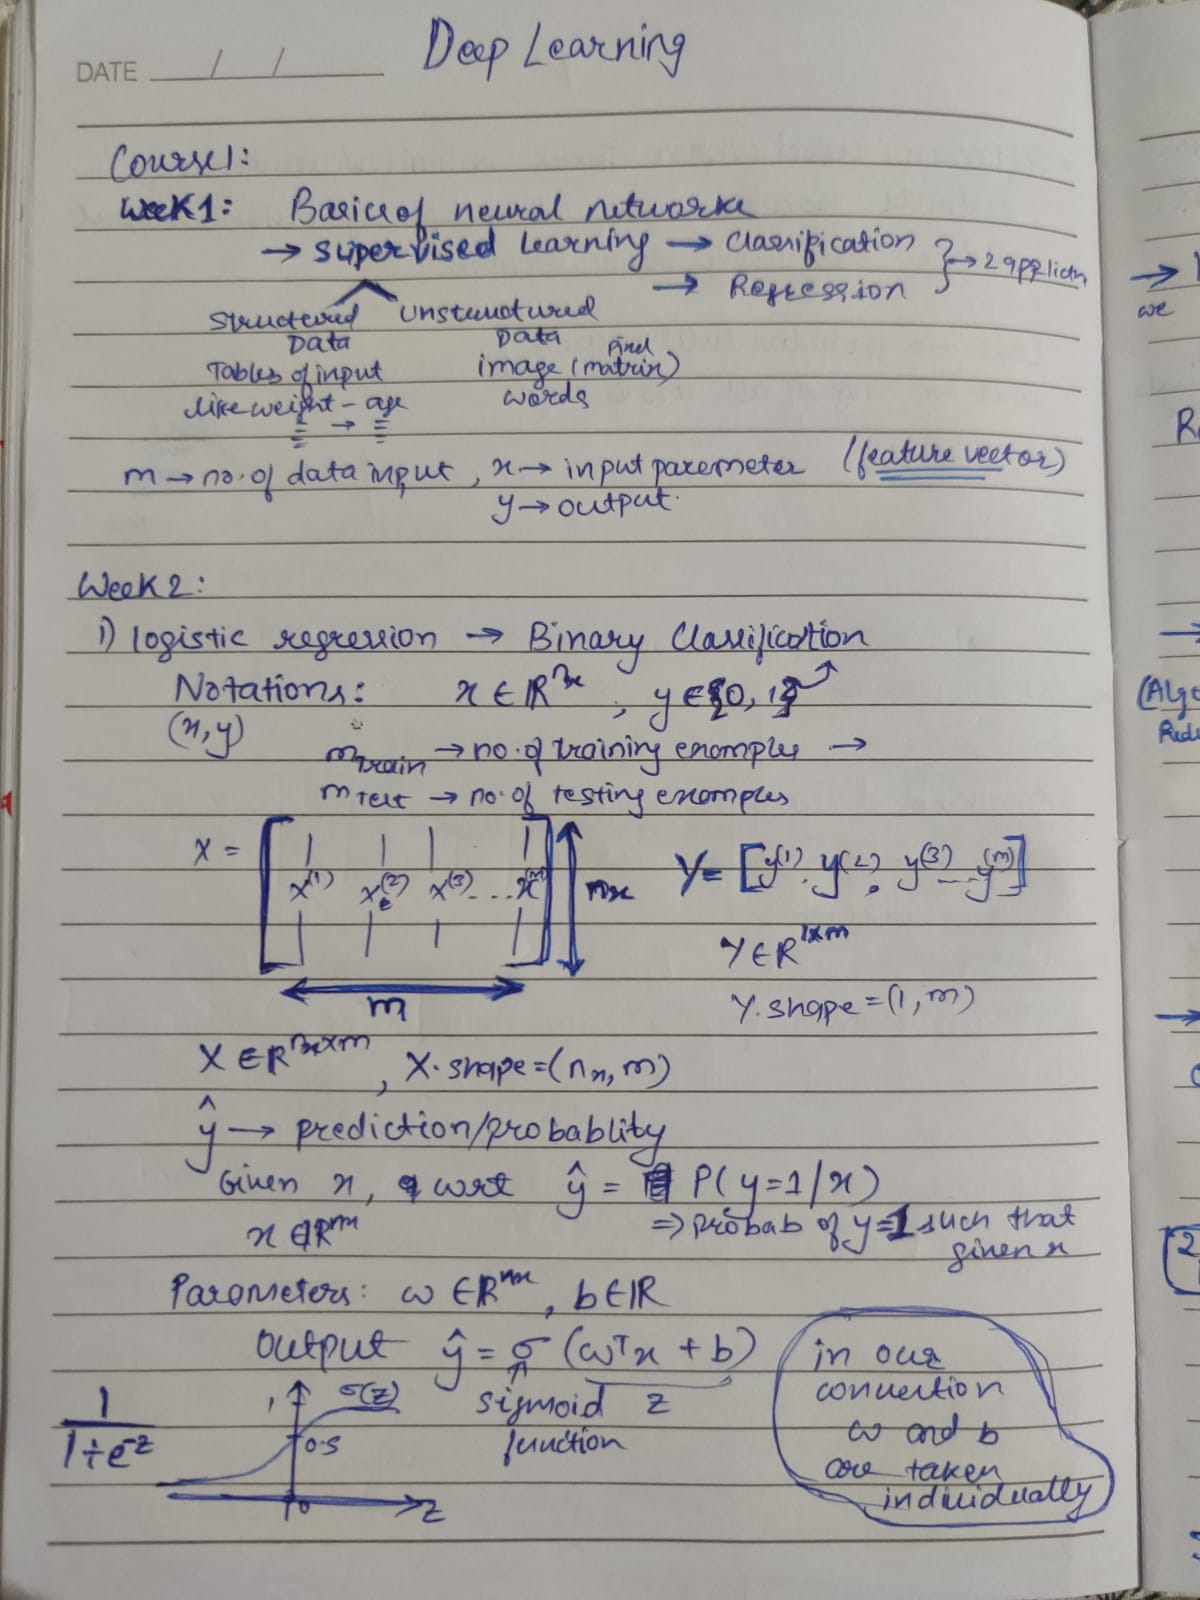 Deep Learning
DATE
Course1:
Week1: Basics of neural networks
→ Supervised Learning → Classification
→ Regression } → 2 applictn
Structured Unstructured
Data Data
Tables of input image (pixel matrix)
like weight - age words
→
m → no. of data input, x → input parameter (feature vector)
y → output.
Week2:
1) logistic regression → Binary Classification
Notations: x ∈ ℝ^nx, y ∈ {0, 1}
(x,y)
m train → no. of training examples →
m Test → no. of testing examples
X = [x^(1) x^(2) x^(3) .... x^(m)] nx Y = [y^(1), y^(2), y^(3) ... y^(m)]
Y ∈ R^1×m
m
Y.shape = (1, m)
X ∈ R^nx×m, X.shape = (nx, m)
ŷ → prediction/probablity
Given x, wrt ŷ = P(y=1/x)
x ∈ R^nx ⇒ probab of y=1 such that
given x
Parameters: ω ∈ R^nx, b ∈ ℝ
Output ŷ = σ (ω^T x + b)
sigmoid z
function
1/(1+e^-z)
1 σ(z)
0.5
0 z
in our
convention
ω and b
are taken
individually
we